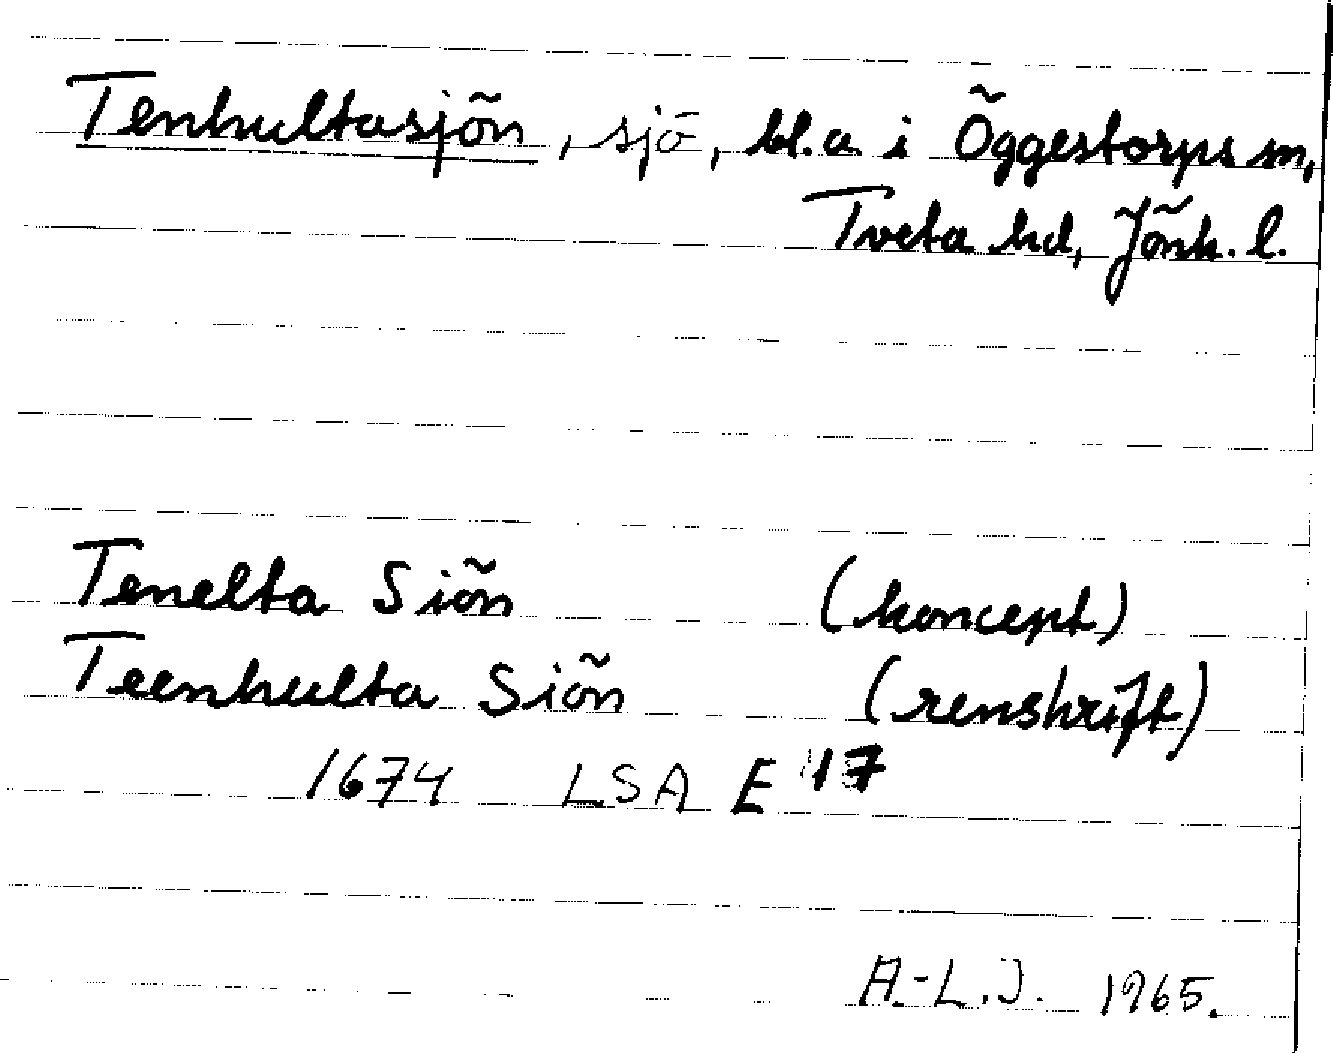 Tenhultasjön, sjö, bl.a. i Öggestorps sn,
Tveta hd, Jönk. l.
Tenelta Siön (koncept)
Teenhulta Siön (renskrift)
1674 LSA E 17
A.-L.J. 1965.